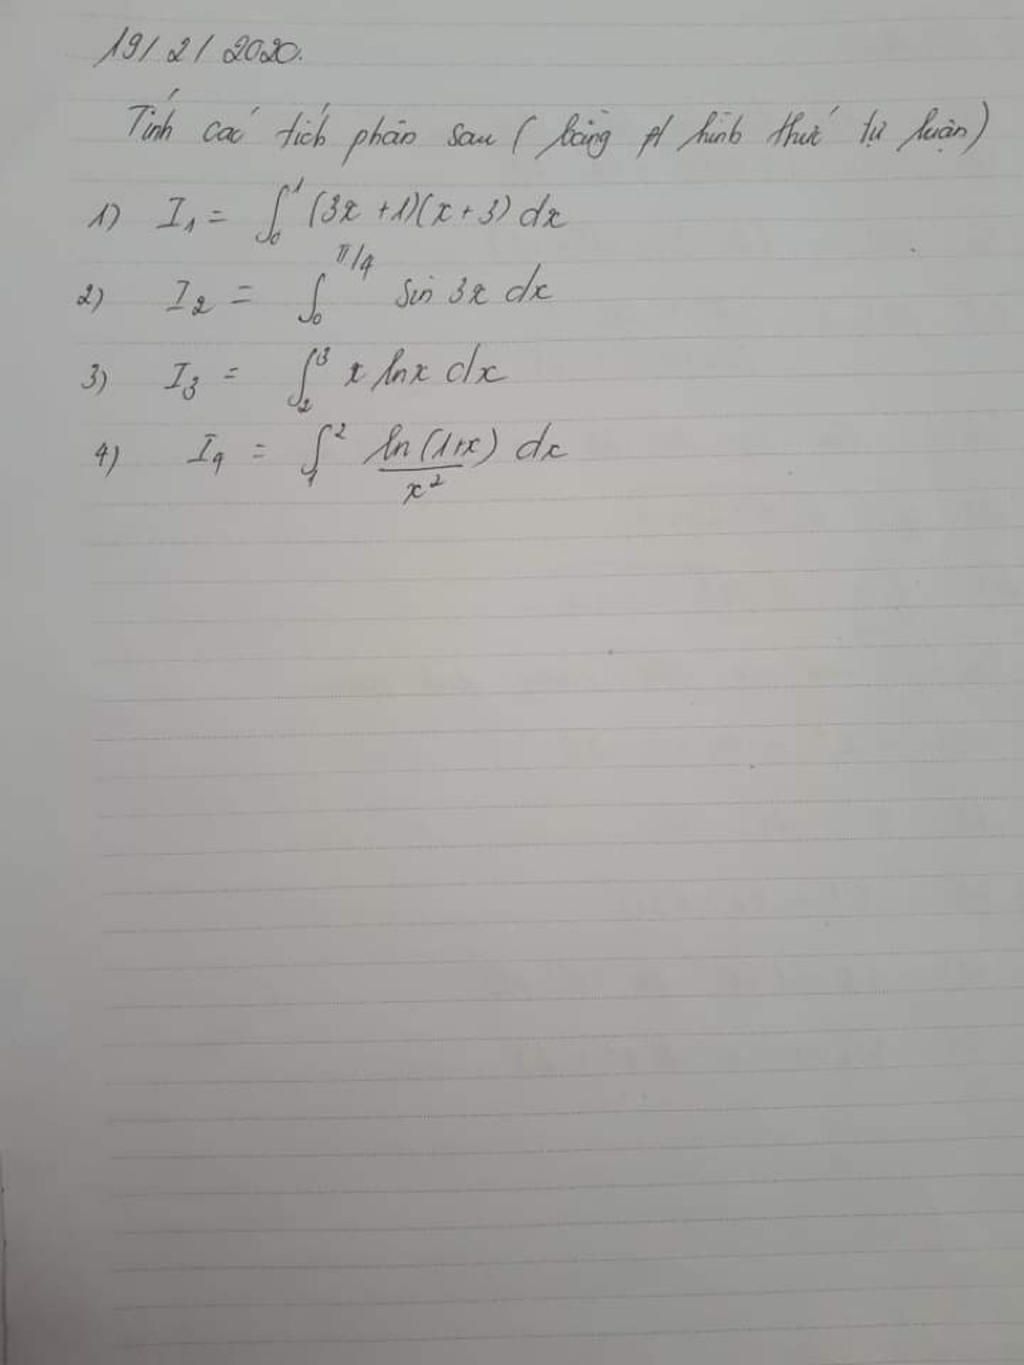 19/2/2020.
Tính các tích phân sau (bằng pp hình thức tự luận)
1) I₁ = ∫₀¹ (3x + 1)(x + 3) dx
2) I₂ = ∫₀^π/4 sin 3x dx
3) I₃ = ∫₂³ x lnx dx
4) I₄ = ∫₁² ln(1+x)/x² dx